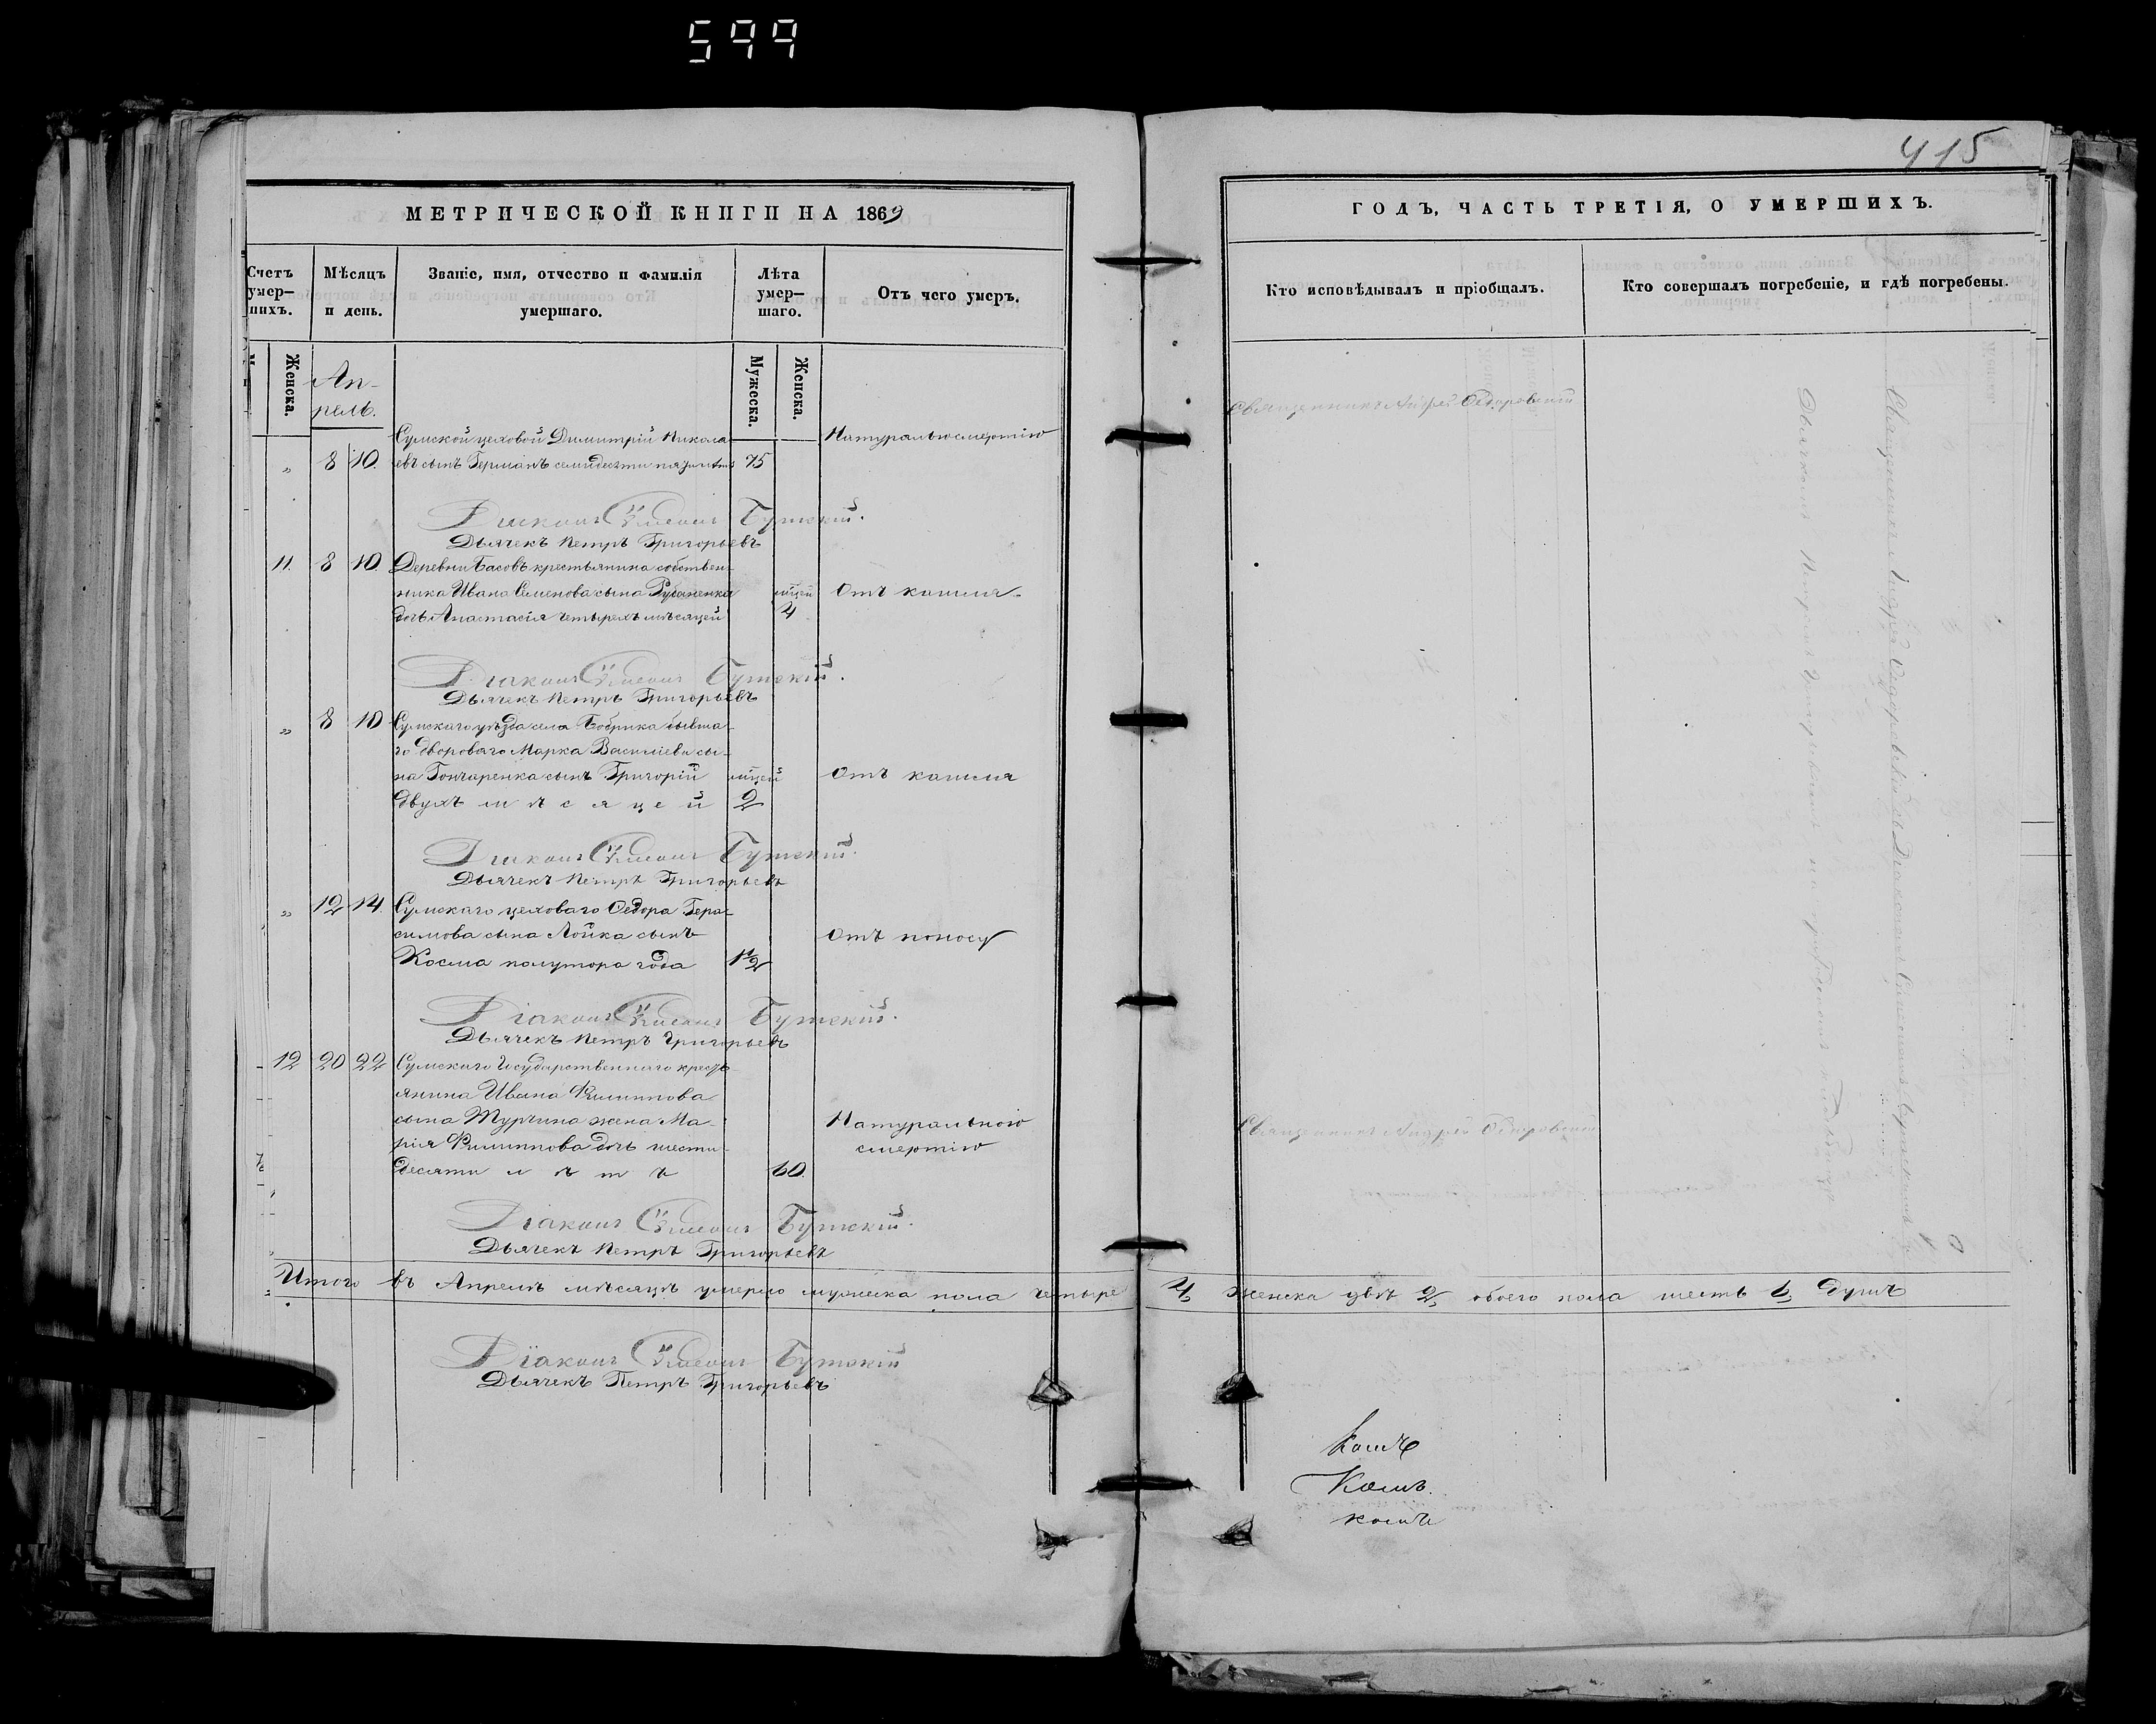 599
415
МЕТРИЧЕСКОЙ КНИГИ НА 1869
ГОДЪ, ЧАСТЬ ТРЕТІЯ, О УМЕРШИХЪ.
Счетъ умер– шихъ.
Мѣсяцъ и день.
Званіе, имя, отчество и фамилія умершаго.
Лѣта умер– шаго.
Отъ чего умеръ.
Кто исповѣдывалъ и пріобщалъ.
Кто совершалъ погребеніе, и гдѣ погребены.
Женска.
Мужеска.
Женска.
Ап-
рель.
Сумской цеховой Димитрій Никола-
евъ сынъ Германъ семидесяти пяти лѣтъ
„ 8 10. 75
Натуральною смертію
Священникъ Андрей Сидоровскій
Діаконъ Симеонъ Бутскій.
Дьячекъ Петръ Григорьевъ
11. 8 10. Деревни Басовъ крестьянина собствен-
ника Ивана Семенова сына Рубаненка
дочь Анастасія четырехъ мѣсяцей
мѣсяцей 4
Отъ кашля
Діаконъ Симеонъ Бутскій.
Дьячекъ Петръ Григорьевъ
„ 8 10 Сумскаго уѣзда села Бобрика бывша-
го двороваго Марка Василіева сы-
на Гончаренка сынъ Григорій
двухъ мѣсяцей 2
Отъ кашля
Діаконъ Симеонъ Бутскій.
Дьячекъ Петръ Григорьевъ
„ 12 14. Сумскаго цеховаго Ѳедора Гера-
симова сына Лойка сынъ
Косма полутора года 1½
Отъ поносу
Діаконъ Симеонъ Бутскій.
Дьячекъ Петръ Григорьевъ
12 20 22 Сумскаго Государственнаго кресть-
янина Ивана Филиппова
сына Турчина жена Ма-
рія Филиппова дочь шести-
десяти лѣтъ 60.
Натуральною
смертію
Священникъ Андрей Сидоровскій
Діаконъ Симеонъ Бутскій.
Дьячекъ Петръ Григорьевъ
Священникъ Андрей Сидоровскій съ Діакономъ Симеономъ Бутскимъ и
Дьячкомъ Петромъ Григорьевымъ на приходскомъ кладбищѣ
Итого въ Апрелѣ мѣсяцѣ умерло мужеска пола четыре 4, женска двѣ 2, обоего пола шесть 6, душъ
Діаконъ Симеонъ Бутскій
Дьячекъ Петръ Григорьевъ